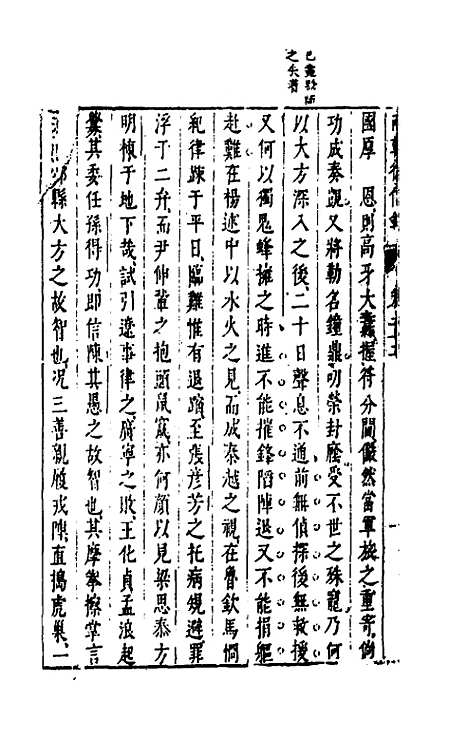 已盡數語
之失着
兩朝從信錄
國厚　恩則高牙大纛握符分閫儼然當軍旅之重寄倘
功成奏凱又將勒名鐘鼎叨榮封廕受不世之殊寵乃何
以大方深入之後二十日聲息不通前無偵探後無救援
又何以獨鬼蜂擁之時進不能摧鋒陷陣退又不能捐軀
赴難在楊述中以水火之見而成秦越之視在魯欽馬惆
紀律踈于平日臨難惟有退蹜至張彦芳之托病規避罪
浮于二弁而尹伸輩之抱頭鼠竄亦何顔以見梁思泰方
明棟于地下哉試引遼事律之廣寧之敗王化貞孟浪起
釁其委任孫得功即信陳其愚之故智也其摩拳擦掌言
縣大方之故智也况三善親履戎陣直搗虎巢二